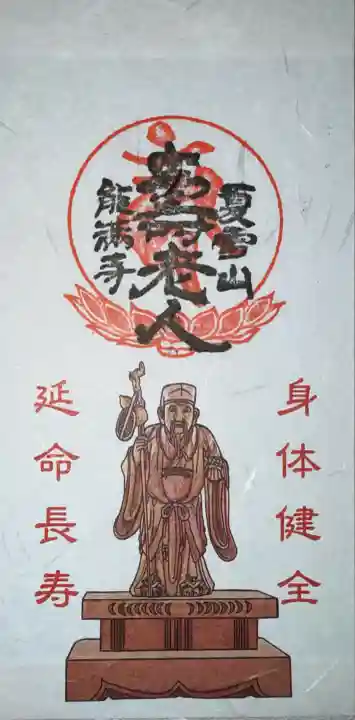 夏雪山
寿老人
能満寺
身体健全
延命長寿